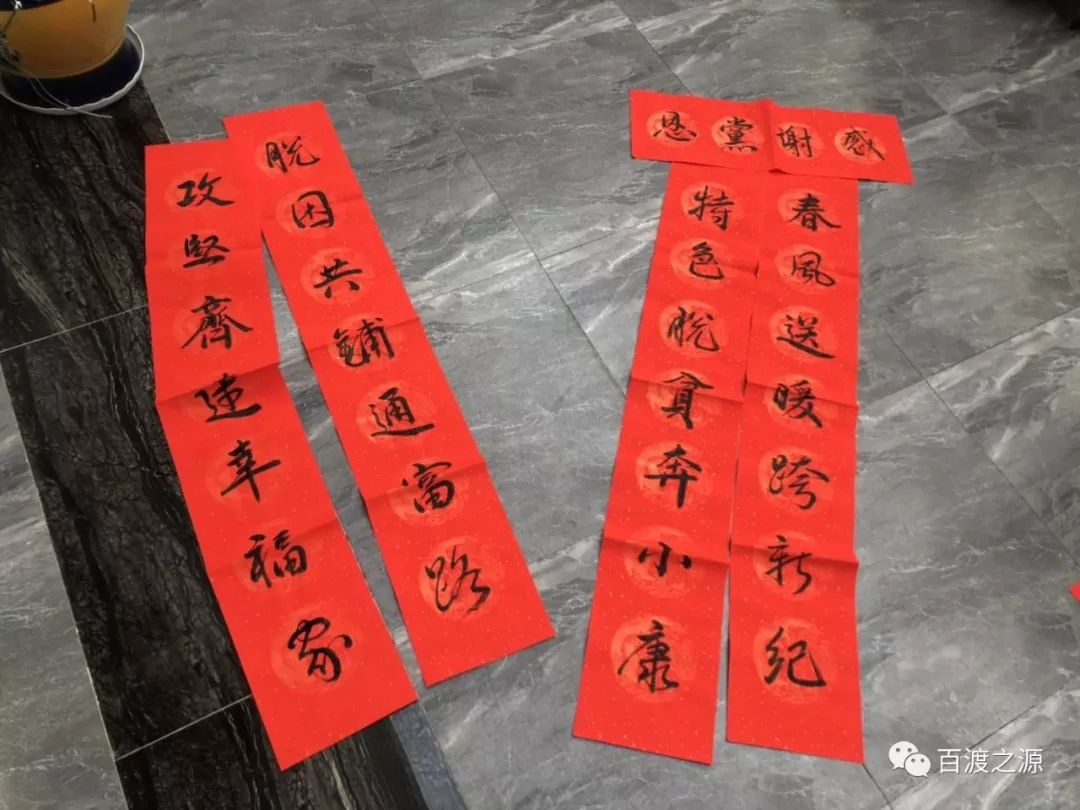 感谢黨恩
春風送暖跨新纪
特色脱貧奔小康
脱困共鋪通富路
攻坚齊造幸福家
百渡之源